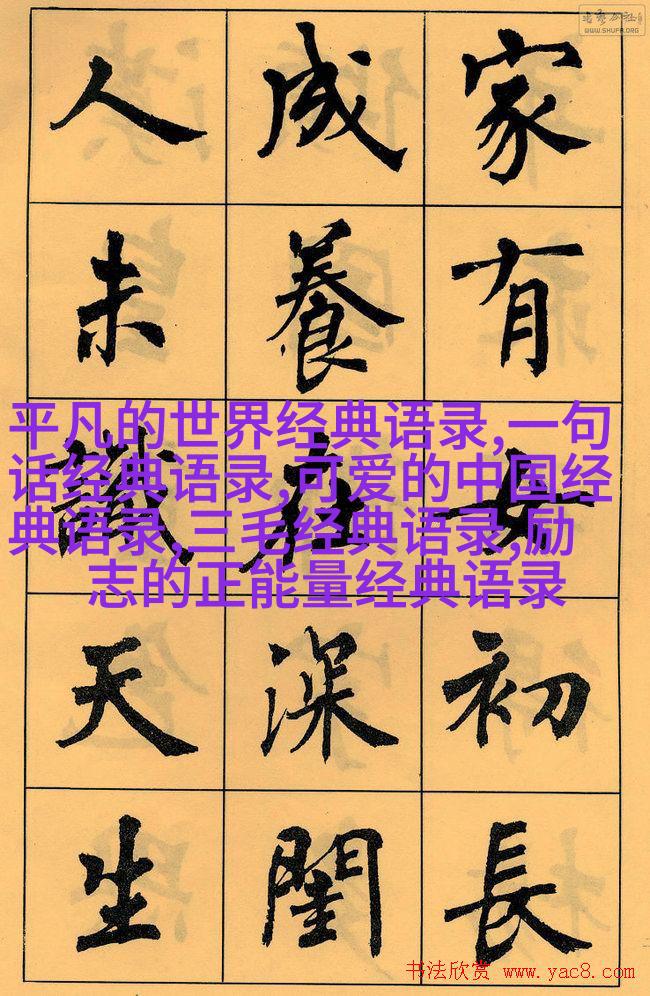 WWW.SHUFA.ORG
家有女初長
成養在深閨
人未識天生
平凡的世界经典语录,一句
话经典语录,可爱的中国经
典语录,三毛经典语录,励
志的正能量经典语录
书法欣赏 www.yac8.com